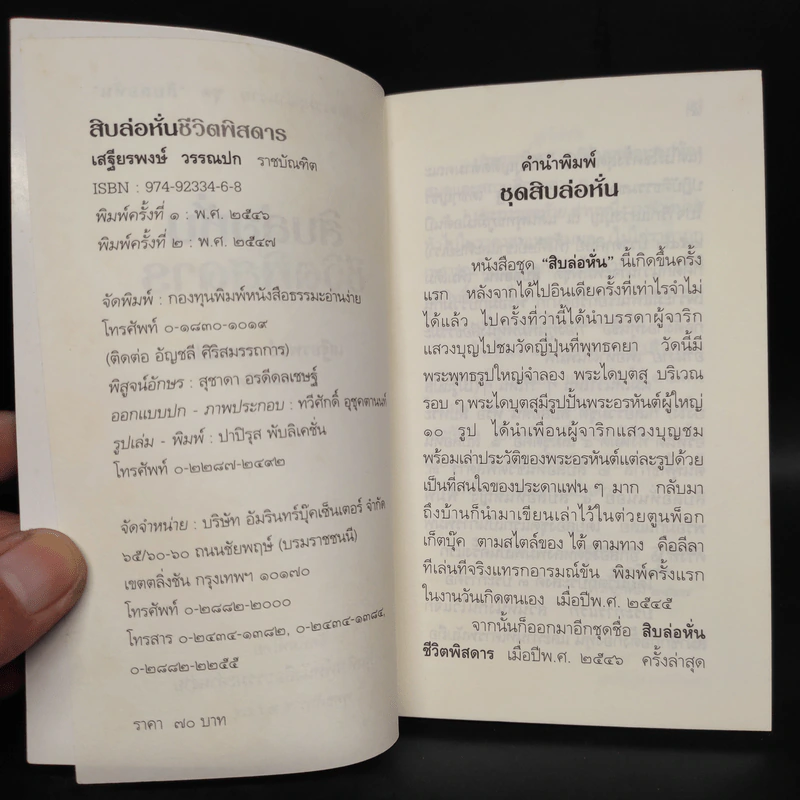 สิบล่อหั่นชีวิตพิสดาร
เสฐียรพงษ์ วรรณปก ราชบัณฑิต
ISBN : 974-92334-6-8
พิมพ์ครั้งที่ ๑ : พ.ศ. ๒๕๔๖
พิมพ์ครั้งที่ ๒ : พ.ศ. ๒๕๔๗
จัดพิมพ์ : กองทุนพิมพ์หนังสือธรรมะอ่านง่าย
โทรศัพท์ ๐-๑๘๓๐-๑๐๑๙
(ติดต่อ อัญชลี ศิริสมรรถการ)
พิสูจน์อักษร : สุชาดา อรดีดลเชษฐ์
ออกแบบปก - ภาพประกอบ : ทวีศักดิ์ อุชุคตานนท์
รูปเล่ม - พิมพ์ : ปาปิรุส พับลิเคชั่น
โทรศัพท์ ๐-๒๒๘๗-๒๔๙๒
จัดจำหน่าย : บริษัท อัมรินทร์บุ๊คเซ็นเตอร์ จำกัด
๖๕/๖๐-๖๐ ถนนชัยพฤษ์ (บรมราชชนนี)
เขตตลิ่งชัน กรุงเทพฯ ๑๐๑๗๐
โทรศัพท์ ๐-๒๘๘๒-๒๐๐๐
โทรสาร ๐-๒๔๓๔-๑๓๘๒, ๐-๒๔๓๔-๑๓๘๔,
๐-๒๘๘๒-๒๒๕๕
ราคา ๗๐ บาท
คำนำพิมพ์
ชุดสิบล่อหั่น
หนังสือชุด “สิบล่อหั่น” นี้เกิดขึ้นครั้ง
แรก หลังจากได้ไปอินเดียครั้งที่เท่าไรจำไม่
ได้แล้ว ไปครั้งที่ว่านี้ได้นำบรรดาผู้จาริก
แสวงบุญไปชมวัดญี่ปุ่นที่พุทธคยา วัดนี้มี
พระพุทธรูปใหญ่จำลอง พระไดบุตสุ บริเวณ
รอบ ๆ พระไดบุตสุมีรูปปั้นพระอรหันต์ผู้ใหญ่
๑๐ รูป ได้นำเพื่อนผู้จาริกแสวงบุญชม
พร้อมเล่าประวัติของพระอรหันต์แต่ละรูปด้วย
เป็นที่สนใจของประดาแฟน ๆ มาก กลับมา
ถึงบ้านก็นำมาเขียนเล่าไว้ในต่วยตูนพ็อก
เก็ตบุ๊ค ตามสไตล์ของ ไต้ ตามทาง คือลีลา
ทีเล่นทีจริงแทรกอารมณ์ขัน พิมพ์ครั้งแรก
ในงานวันเกิดตนเอง เมื่อปีพ.ศ. ๒๕๔๕
จากนั้นก็ออกมาอีกชุดชื่อ สิบล่อหั่น
ชีวิตพิสดาร เมื่อปีพ.ศ. ๒๕๔๖ ครั้งล่าสุด